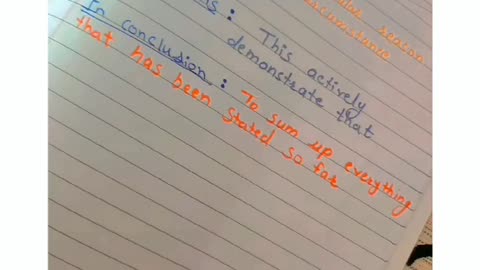 reason
: This actively
demonstrate that
In conclusion : To sum up everything
that has been stated so far